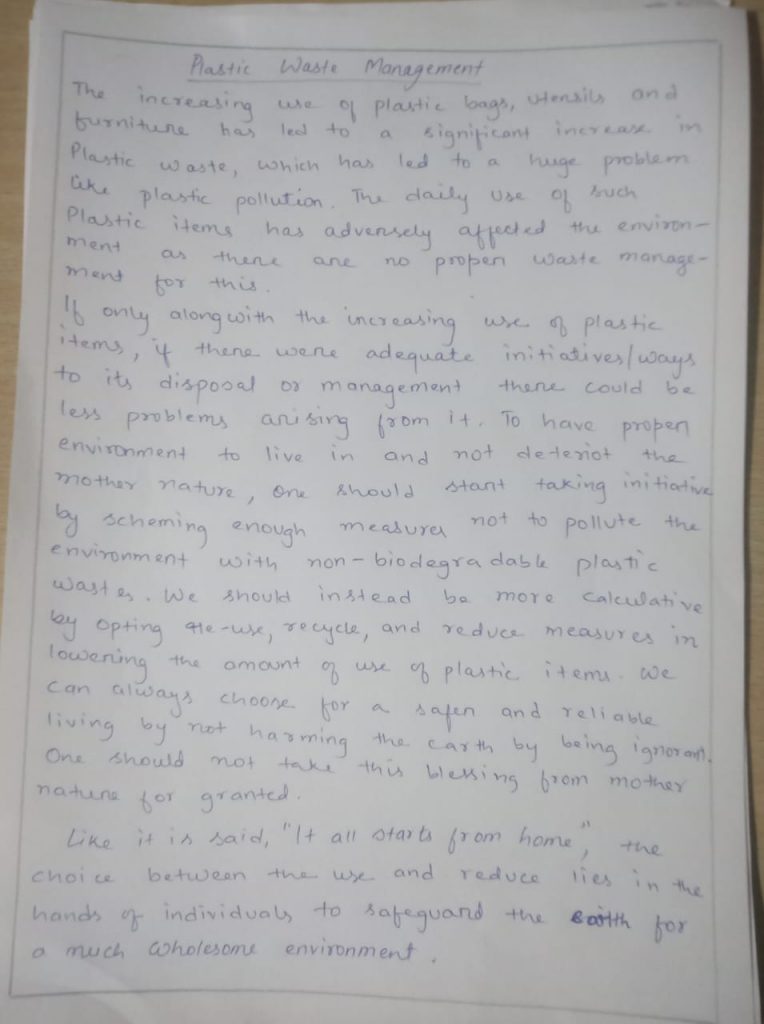 Plastic Waste Management
The increasing use of plastic bags, utensils and
furniture has led to a significant increase in
Plastic waste, which has led to a huge problem
like plastic pollution. The daily use of such
Plastic items has adversely affected the environ-
ment as there are no proper waste manage-
ment for this.
If only alongwith the increasing use of plastic
items, if there were adequate initiatives/ways
to its disposal or management there could be
less problems arising from it. To have proper
environment to live in and not deteriot the
mother nature, one should start taking initiative
by scheming enough measures not to pollute the
environment with non-biodegradable plastic
wastes. We should instead be more calculative
by opting re-use, recycle, and reduce measures in
lowering the amount of use of plastic items. We
can always choose for a safer and reliable
living by not harming the earth by being ignorant.
One should not take this blessing from mother
nature for granted.
Like it is said, "It all starts from home", the
choice between the use and reduce lies in the
hands of individuals to safeguard the earth for
a much wholesome environment.